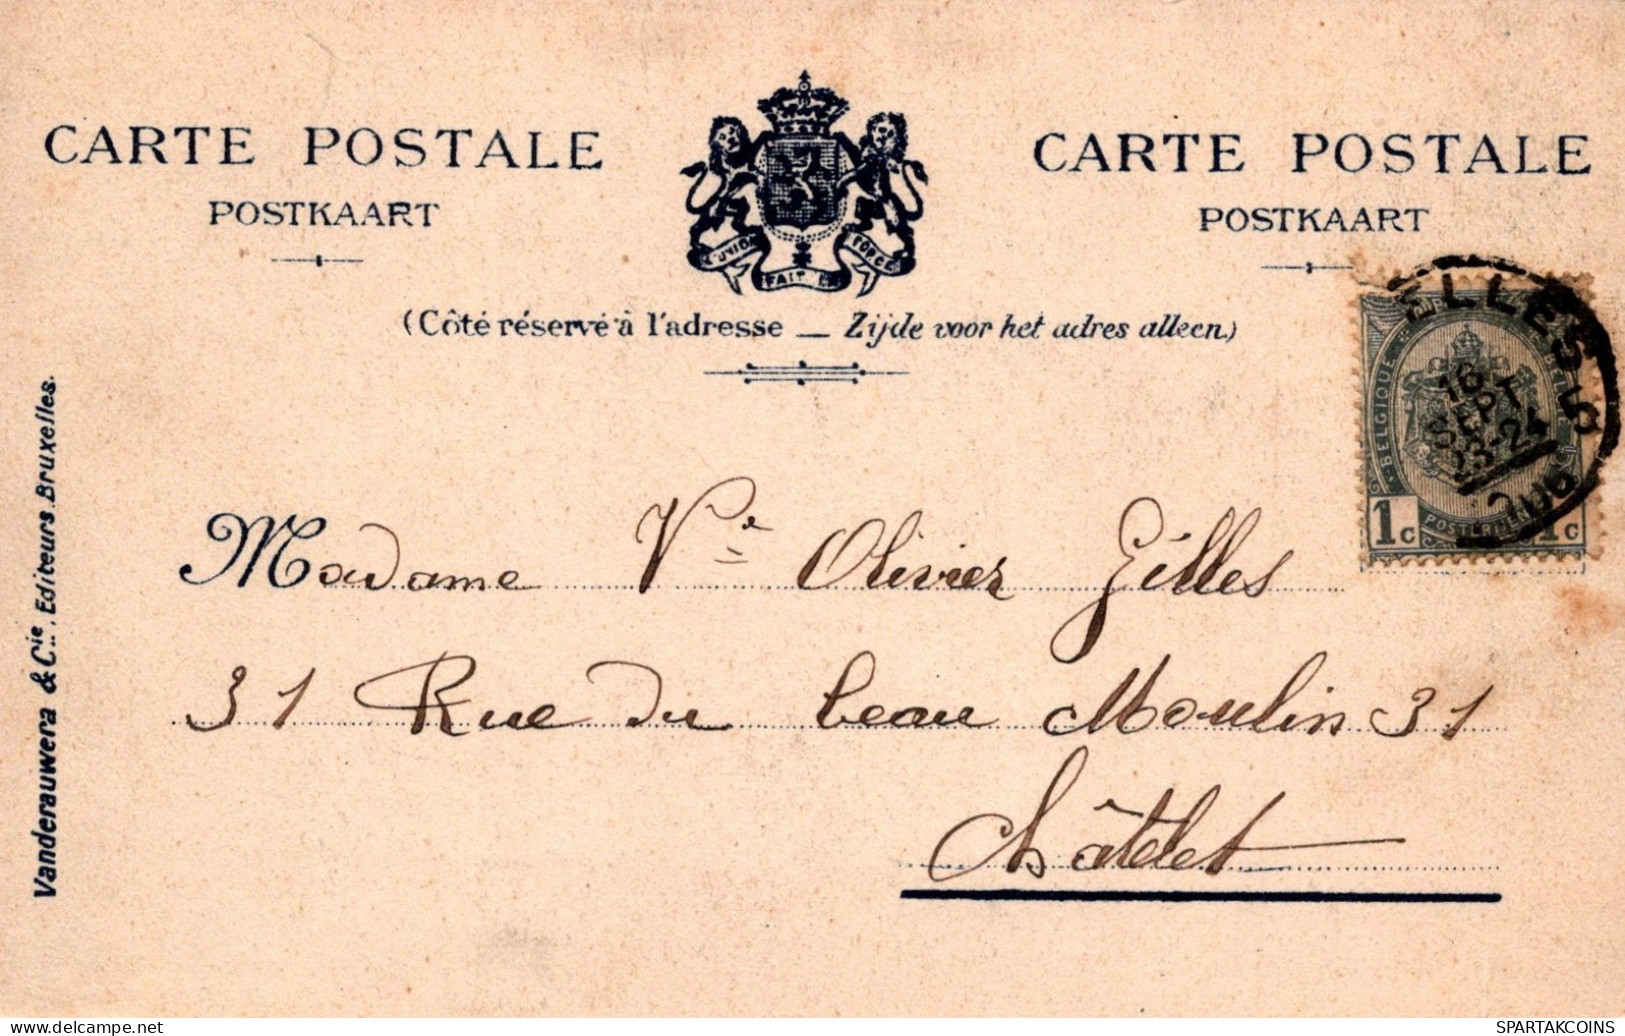 CARTE POSTALE
POSTKAART
CARTE POSTALE
POSTKAART
L'UNION FAIT LA FORCE
(Côté réservé à l'adresse — Zijde voor het adres alleen)
BELGIQUE
1c
16
SEPT
23-24
Madame Ve Olivier Gilles
31 Rue du beau Moulin 31
Châtelet
Vanderauwera & Cie., Editeurs Bruxelles.
delcampe.net
SPARTAKCOINS